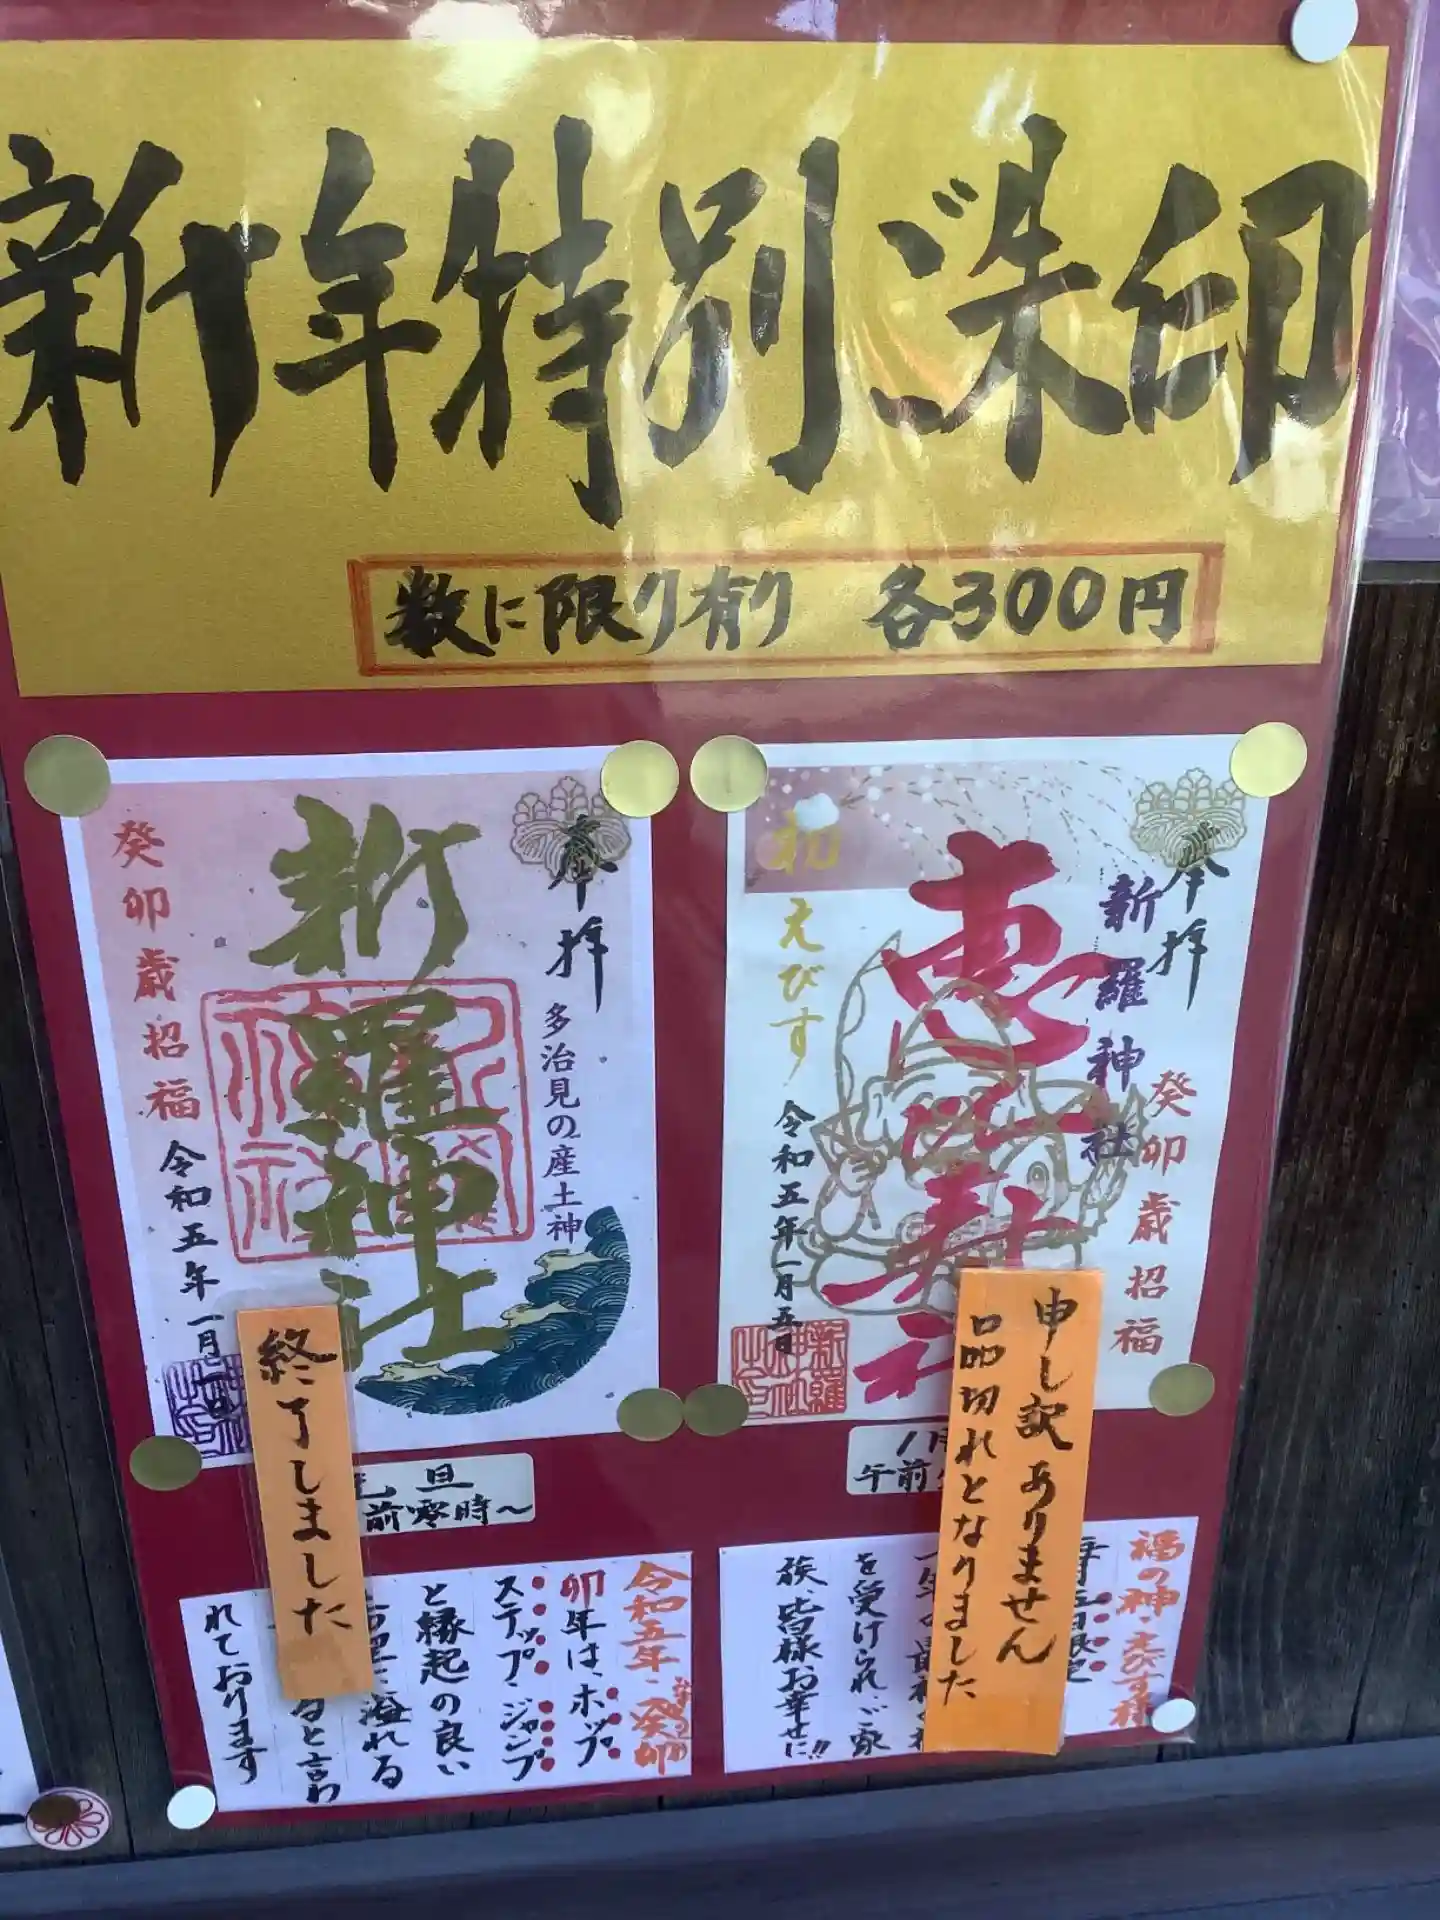 新年特別ご朱印
数に限り有り 各300円
奉拝
多治見の産土神
新羅神社
癸卯歳招福
令和五年一月一日
終了しました
元旦
前零時～
令和五年、癸卯
卯年は、ホップ
ステップ・ジャンプ
と縁起の良い
溢れる
ると言わ
れております
奉拝
新羅神社
癸卯歳招福
恵比寿神
初えびす
令和五年一月五日
新羅神社之印
申し訳ありません
品切れとなりました
午前
福の神・えびす様
を受けられ、ご家
族、皆様お幸せに!!